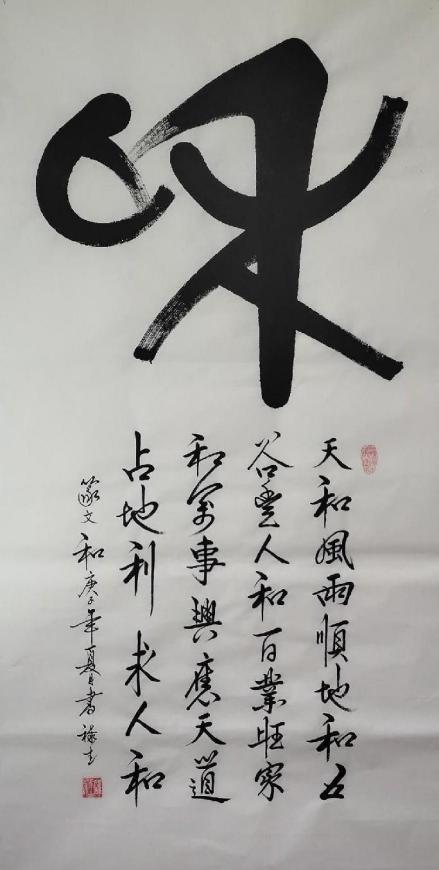 和
天和風雨順地和五
谷豐人和百業旺家
和萬事興應天道
占地利求人和
篆文和庚子年夏日書